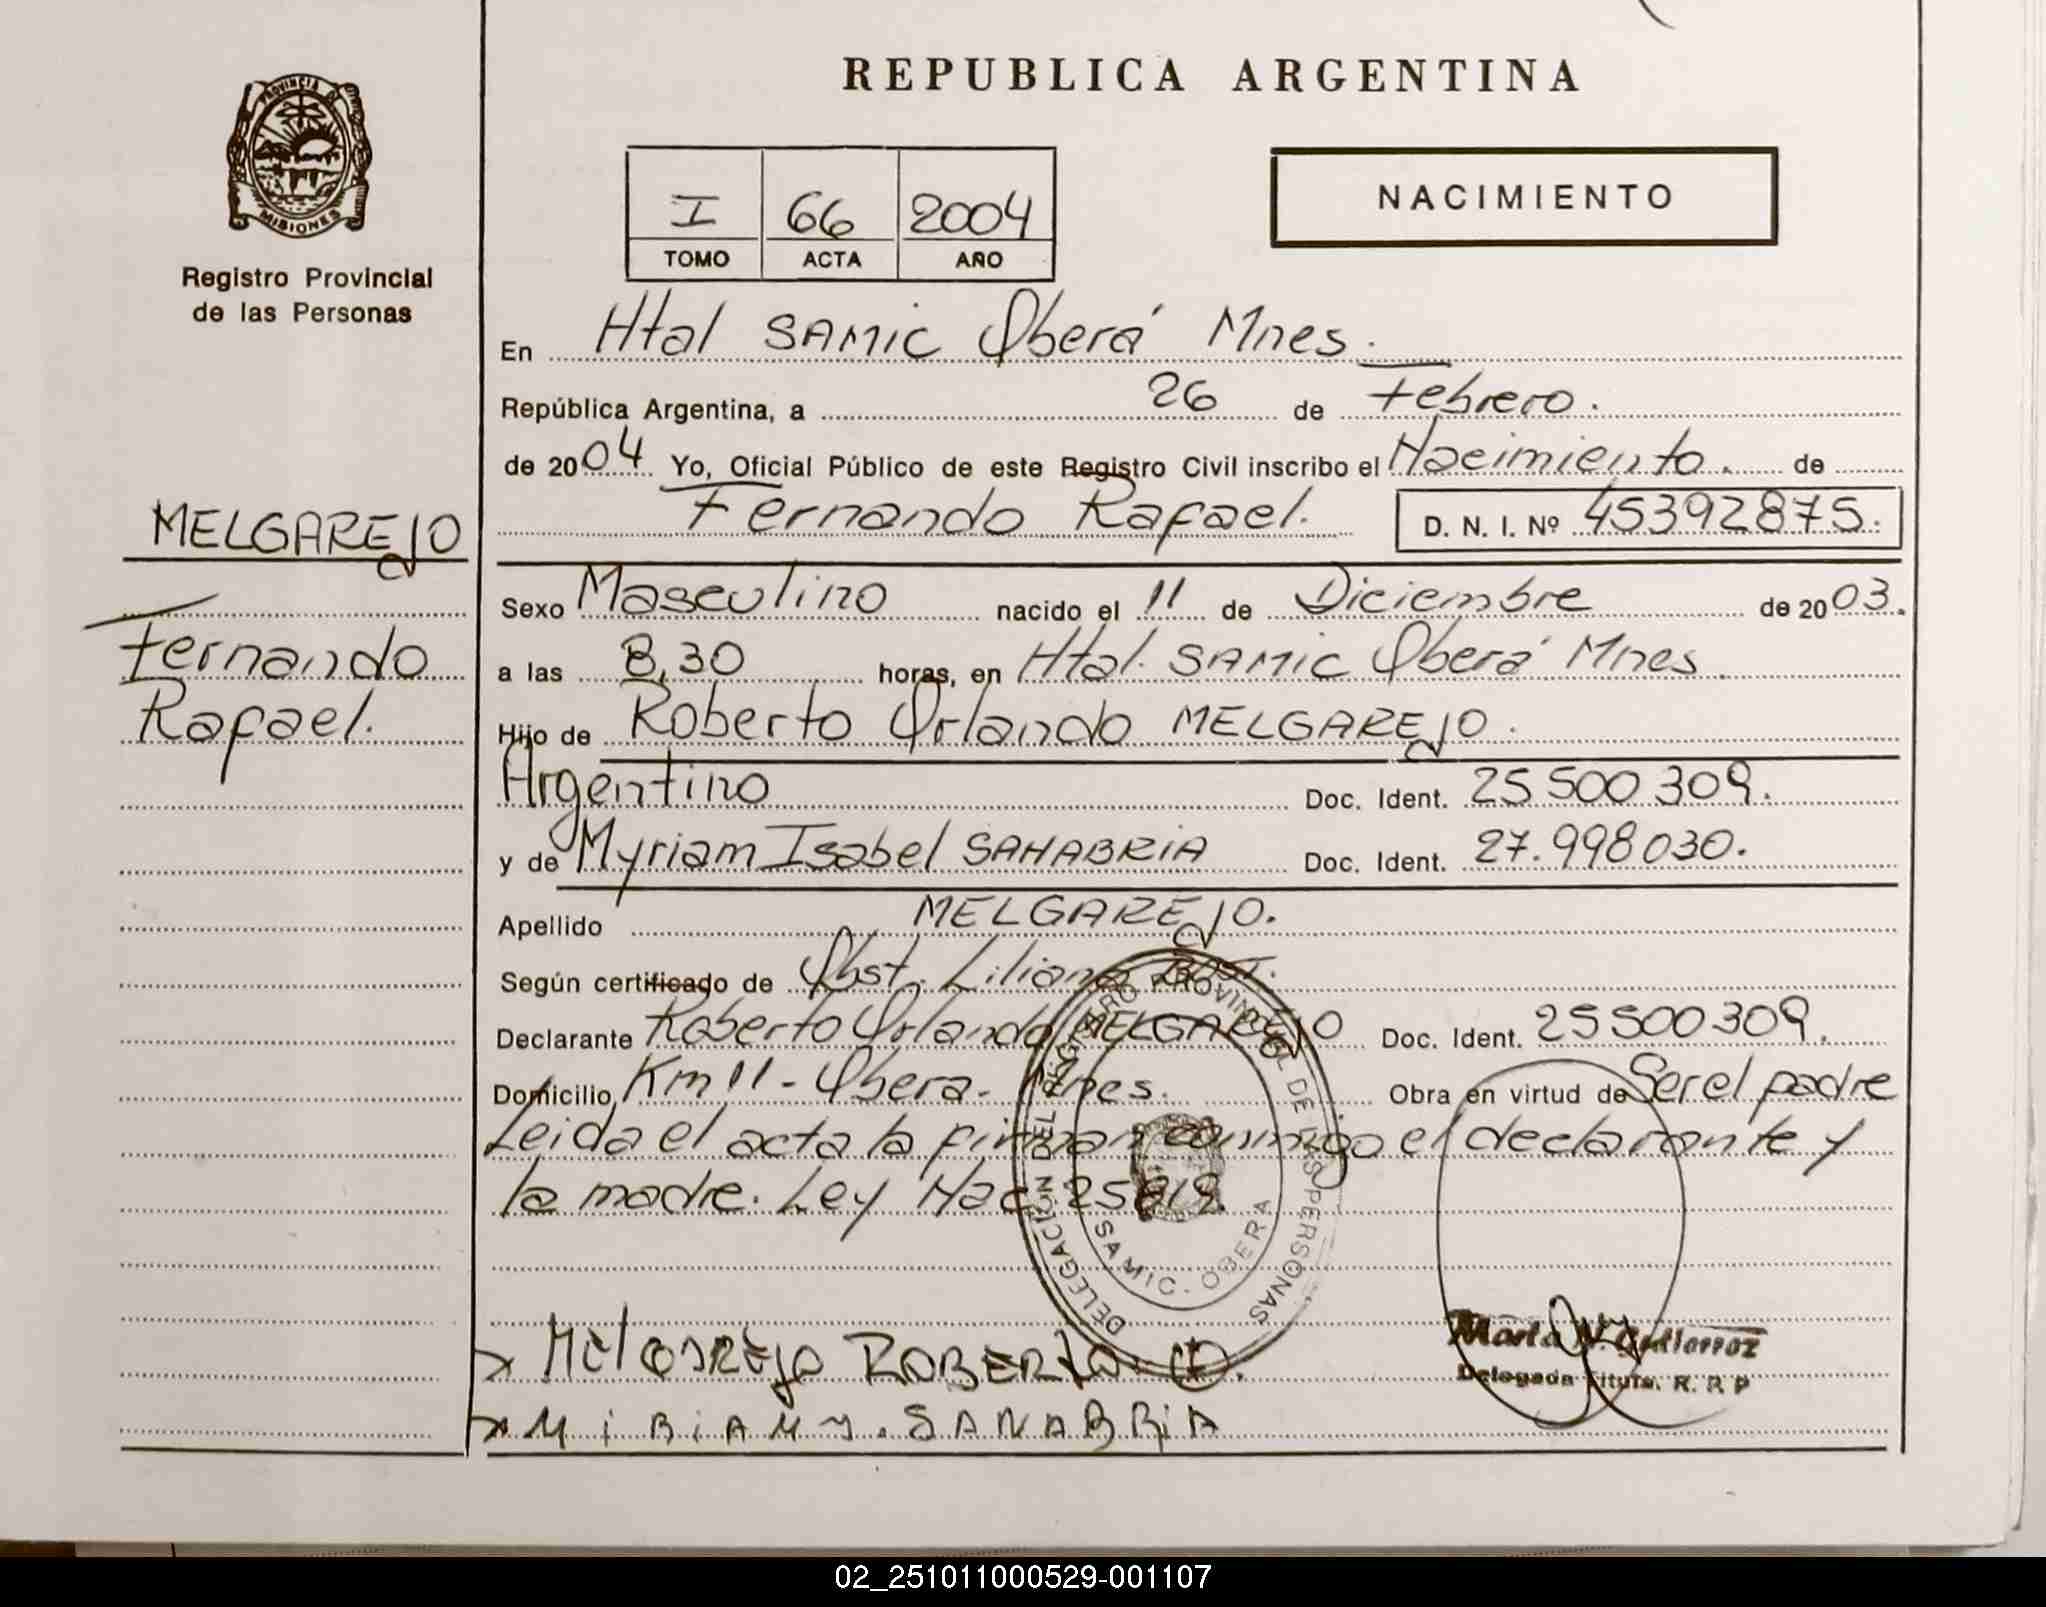 REPUBLICA ARGENTINA
PROVINCIA DE
MISIONES
Registro Provincial
de las Personas
I 66 2004
TOMO ACTA AÑO
NACIMIENTO
En Htal SAMIC Oberá Mnes.
República Argentina, a 26 de Febrero.
de 2004 Yo, Oficial Público de este Registro Civil inscribo el Nacimiento. de
Fernando Rafael. D. N. I. Nº 45392875.
MELGAREJO
Fernando
Rafael.
Sexo Masculino nacido el 11 de Diciembre de 2003.
a las 8,30 horas, en Htal. SAMIC Oberá Mnes.
Hijo de Roberto Orlando MELGAREJO.
Argentino Doc. Ident. 25 500 309.
y de Myriam Isabel SANABRIA Doc. Ident. 27.998030.
Apellido MELGAREJO.
Según certificado de Obst. Liliana
Declarante Roberto Orlando MELGAREJO Doc. Ident. 25500309.
Domicilio Km 11 - Obera - Mnes. Obra en virtud de Ser el padre
Leida el acta la firman conmigo el declarante y
la madre. Ley Nac 25819.
DELEGACION DEL REGISTRO PROVINCIAL DE LAS PERSONAS
SAMIC - OBERA
MELGAREJO ROBERTO O.
MIRIAM Y. SANABRIA
Marta N. Gutierrez
Delegada Titular R. P. P
02_251011000529-001107